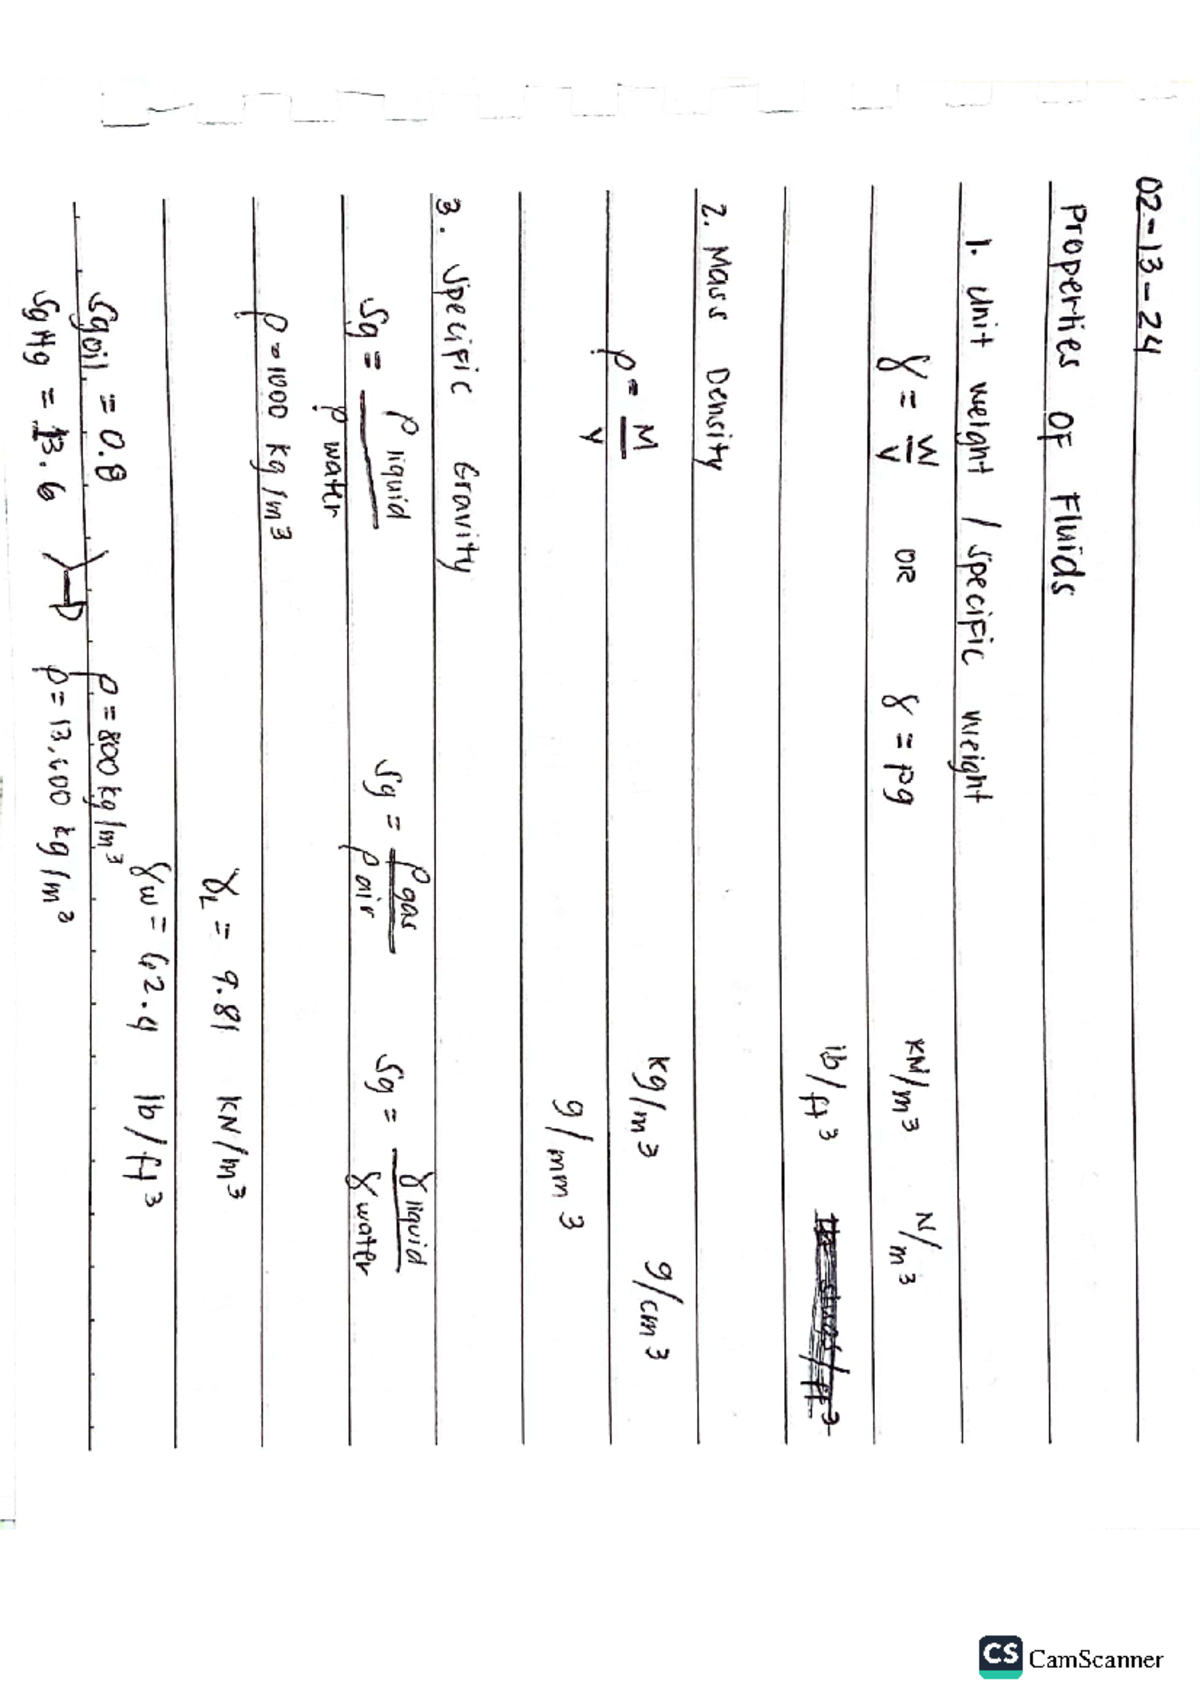 02-13-24
Properties OF Fluids
1. Unit weight / specific weight
γ = W/V OR γ = ρg KN/m³ N/m³
lb/ft³
2. Mass Density
ρ = M/V kg/m³ g/cm³
g/mm³
3. Specific Gravity
Sg = ρ liquid / ρ water Sg = ρ gas / ρ air Sg = γ liquid / γ water
ρ = 1000 kg/m³
γL = 9.81 KN/m³
γw = 62.4 lb/ft³
Sg oil = 0.8 ρ = 800 kg/m³
Sg Hg = 13.6 ρ = 13,600 kg/m³
CS CamScanner